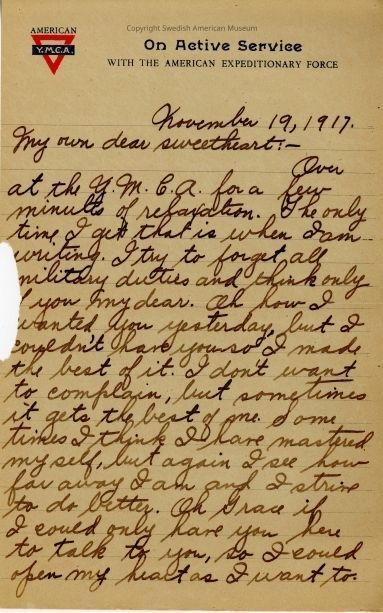 Copyright Swedish American Museum
AMERICAN
Y.M.C.A.
On Active Service
WITH THE AMERICAN EXPEDITIONARY FORCE
November 19, 1917.
My own dear sweetheart:-
Over
at the Y.M.C.A. for a few
minutes of relaxation. The only
time I get that is when I am
writing. I try to forget all
military duties and think only
of you my dear. Oh how I
wanted you yesterday, but I
couldn't have you so I made
the best of it. I don't want
to complain, but sometimes
it gets the best of me. Some
times I think I have mastered
my self, but again I see how
far away I am and I strive
to do better. Oh Grace if
I could only have you here
to talk to you, so I could
open my heart as I want to.